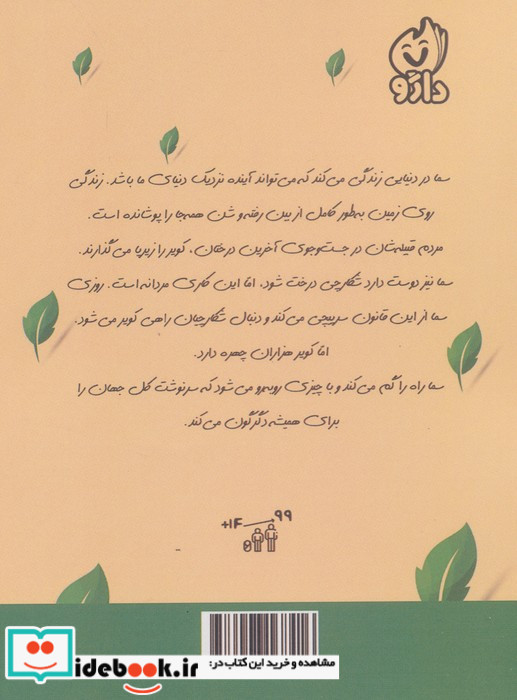 دارکو
سما در دنیایی زندگی می‌کند که می‌تواند آینده نزدیک دنیای ما باشد. زندگی
روی زمین به‌طور کامل از بین رفته و شن همه‌جا را پوشانده است.
مردم قبیله‌شان در جست‌وجوی آخرین درختان، کویر را زیر پا می‌گذارند.
سما نیز دوست دارد شکارچی درخت شود، اما این کاری مردانه است. روزی
سما از این قانون سرپیچی می‌کند و دنبال شکارچیان راهی کویر می‌شود.
اما کویر هزاران چهره دارد.
سما راه را گم می‌کند و با چیزی روبه‌رو می‌شود که سرنوشت کل جهان را
برای همیشه دگرگون می‌کند.
+۱۴ ۹۹
idebook.ir
مشاهده و خرید این کتاب در: